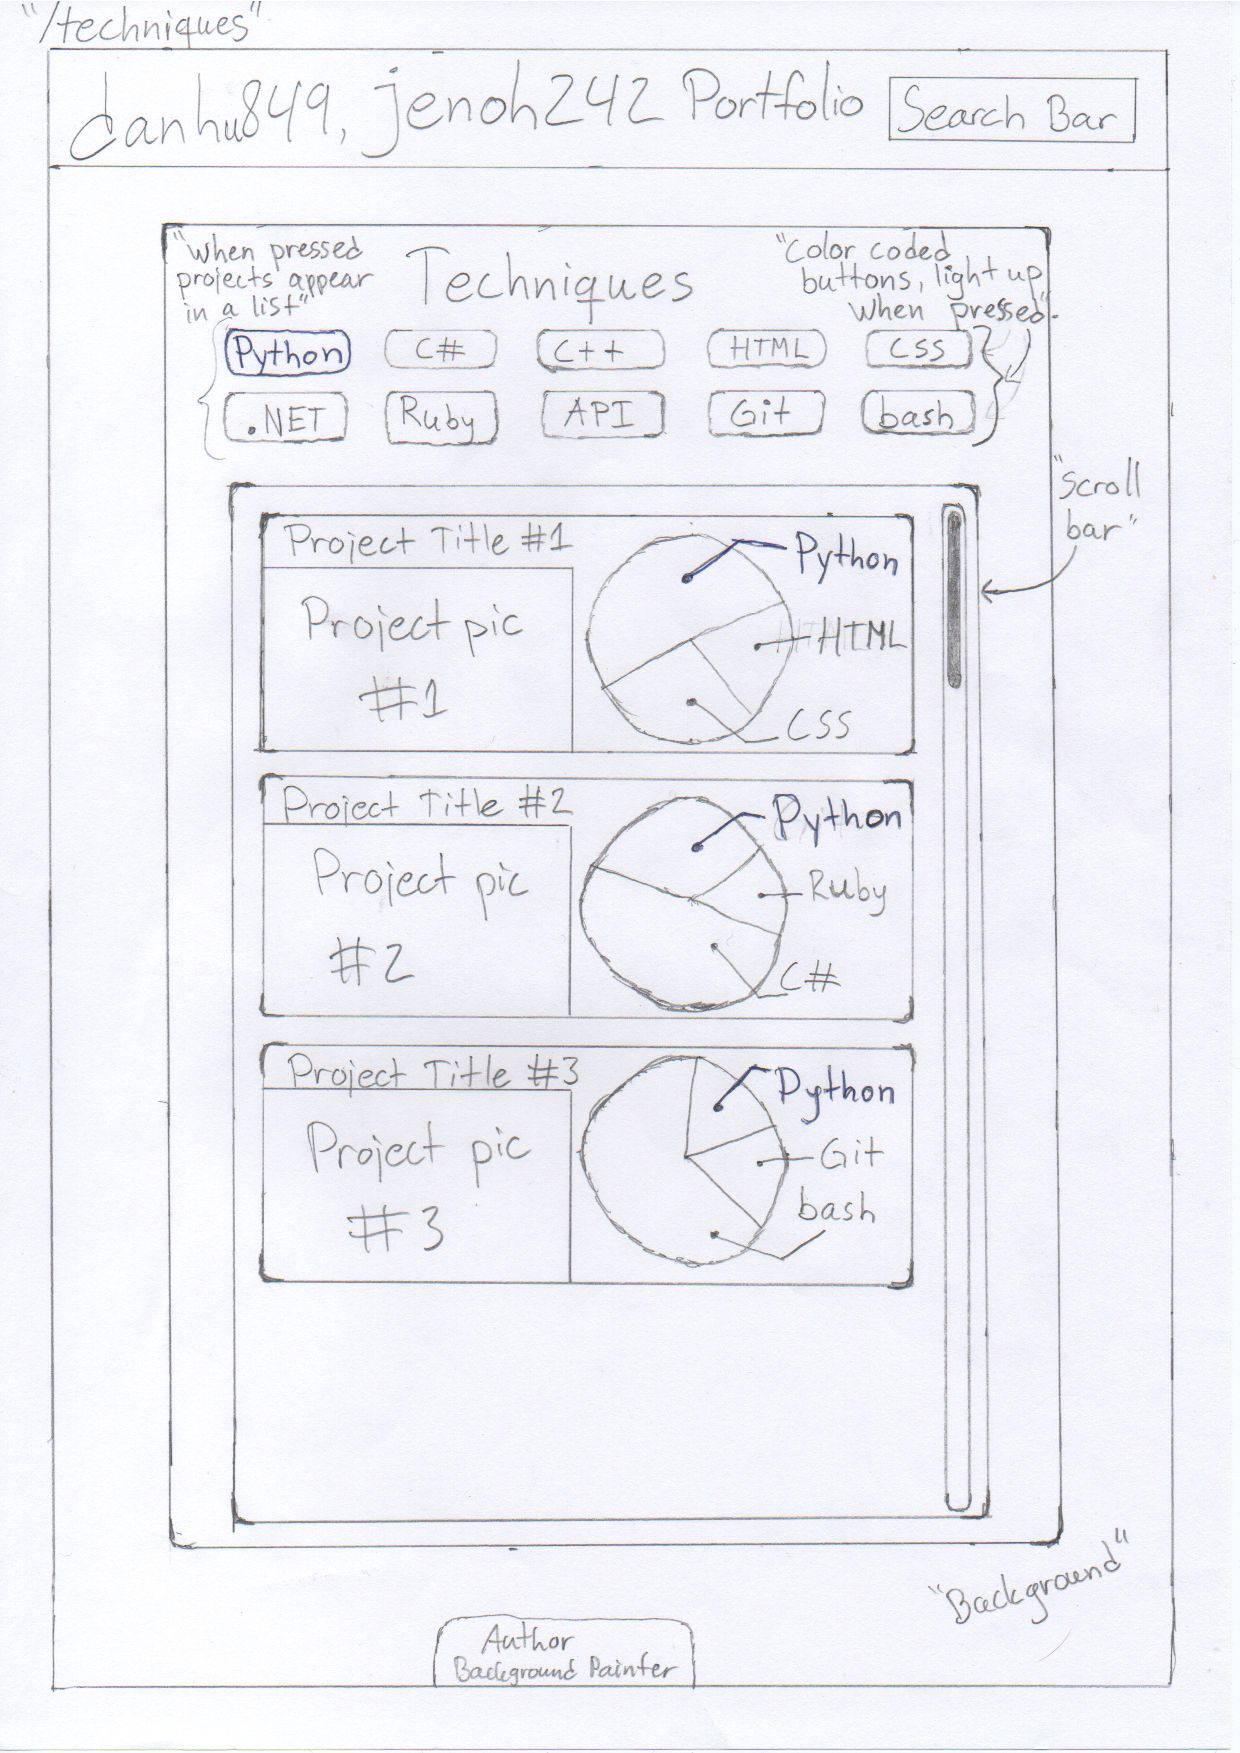 "/techniques"
danhu849, jenoh242 Portfolio
Search Bar
"When pressed
projects appear
in a list"
Techniques
"Color coded
buttons, light up
when pressed".
Python C# C++ HTML CSS
.NET Ruby API Git bash
"scroll
bar"
Project Title #1
Project pic
#1
Python
HTML
CSS
Project Title #2
Project pic
#2
Python
Ruby
C#
Project Title #3
Project pic
#3
Python
Git
bash
"Background"
Author
Background Painter